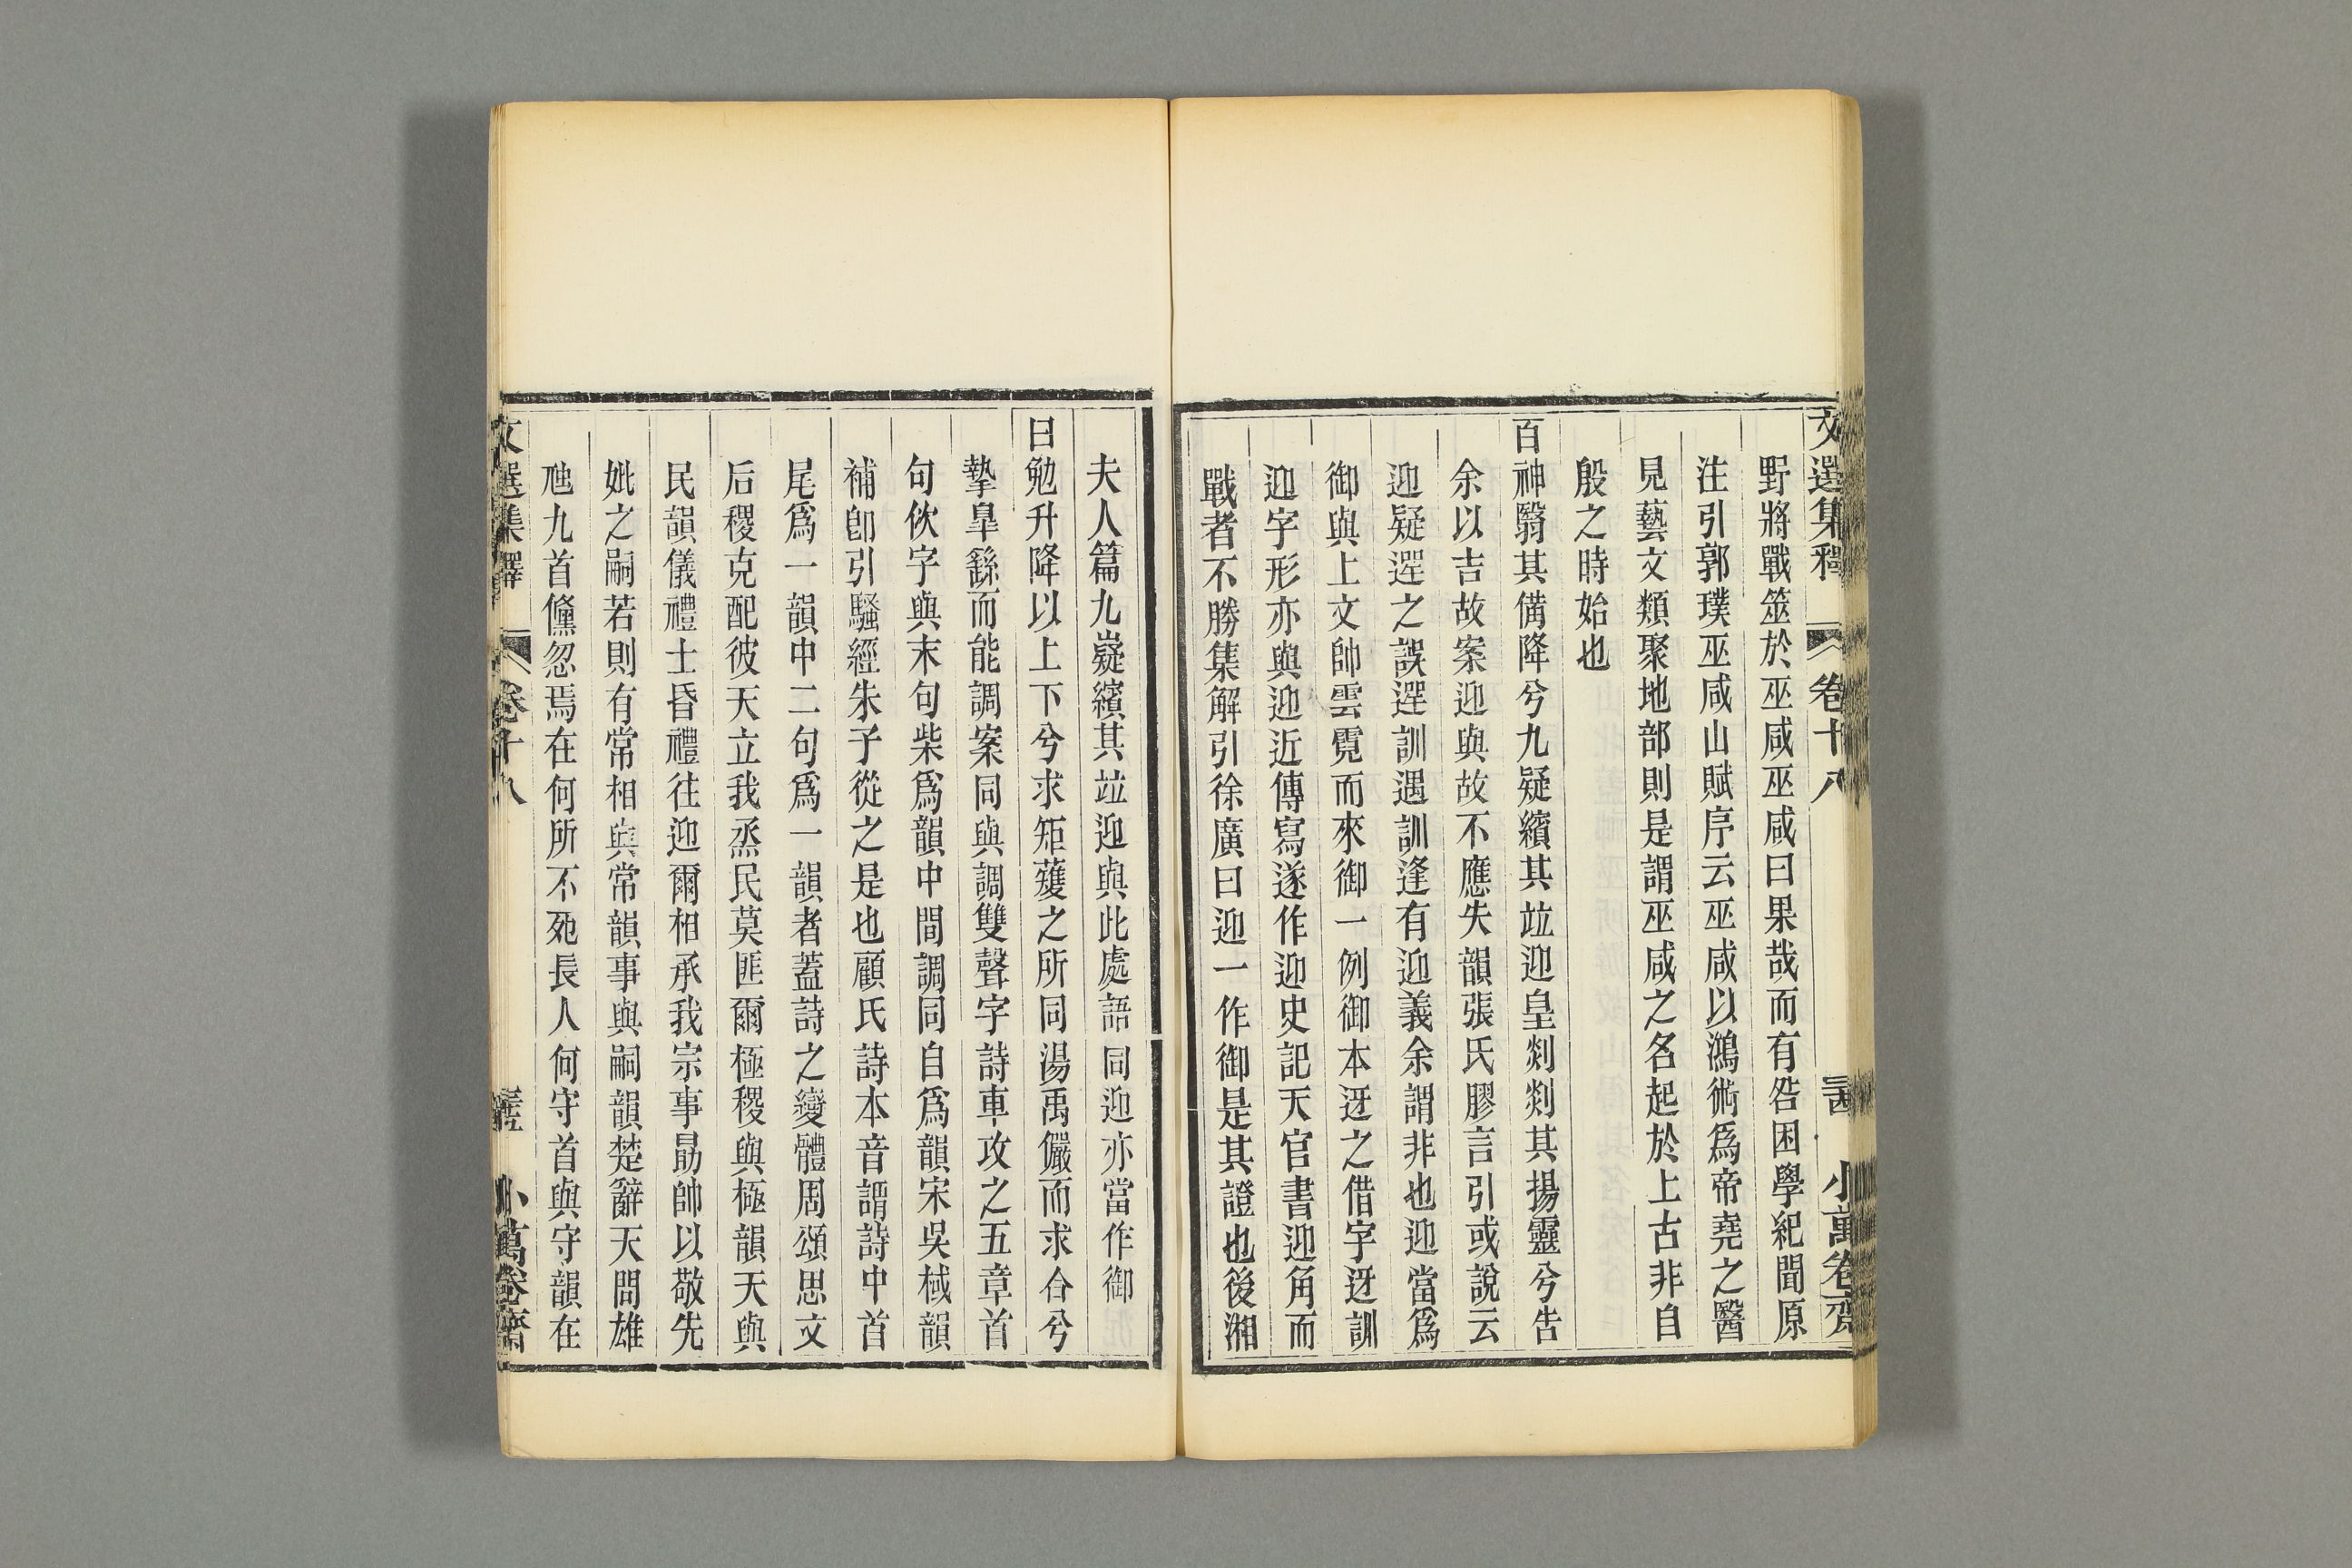 文選集釋 卷十八 小萬卷齋
野將戰筮於巫咸巫咸曰果哉而有咎困學紀聞原
注引郭璞巫咸山賦序云巫咸以鴻術爲帝堯之醫
見藝文類聚地部則是謂巫咸之名起於上古非自
殷之時始也
百神翳其備降兮九疑繽其竝迎皇剡剡其揚靈兮告
余以吉故案迎與故不應失韻張氏膠言引或說云
迎疑遻之誤遻訓遇訓逢有迎義余謂非也迎當爲
御與上文帥雲霓而來御一例御本迓之借字迓訓
迎字形亦與迎近傳寫遂作迎史記天官書迎角而
戰者不勝集解引徐廣曰迎一作御是其證也後湘
夫人篇九嶷繽其竝迎與此處語同迎亦當作御
曰勉升降以上下兮求矩矱之所同湯禹儼而求合兮
摯皐繇而能調案同與調雙聲字詩車攻之五章首
句佽字與末句柴爲韻中間調同自爲韻宋吳棫韻
補卽引騷經朱子從之是也顧氏詩本音謂詩中首
尾爲一韻中二句爲一韻者蓋詩之變體周頌思文
后稷克配彼天立我烝民莫匪爾極稷與極韻天與
民韻儀禮士昏禮往迎爾相承我宗事勗帥以敬先
妣之嗣若則有常相與常韻事與嗣韻楚辭天問雄
虺九首儵忽焉在何所不死長人何守首與守韻在
文選集釋 卷十八 小萬卷齋